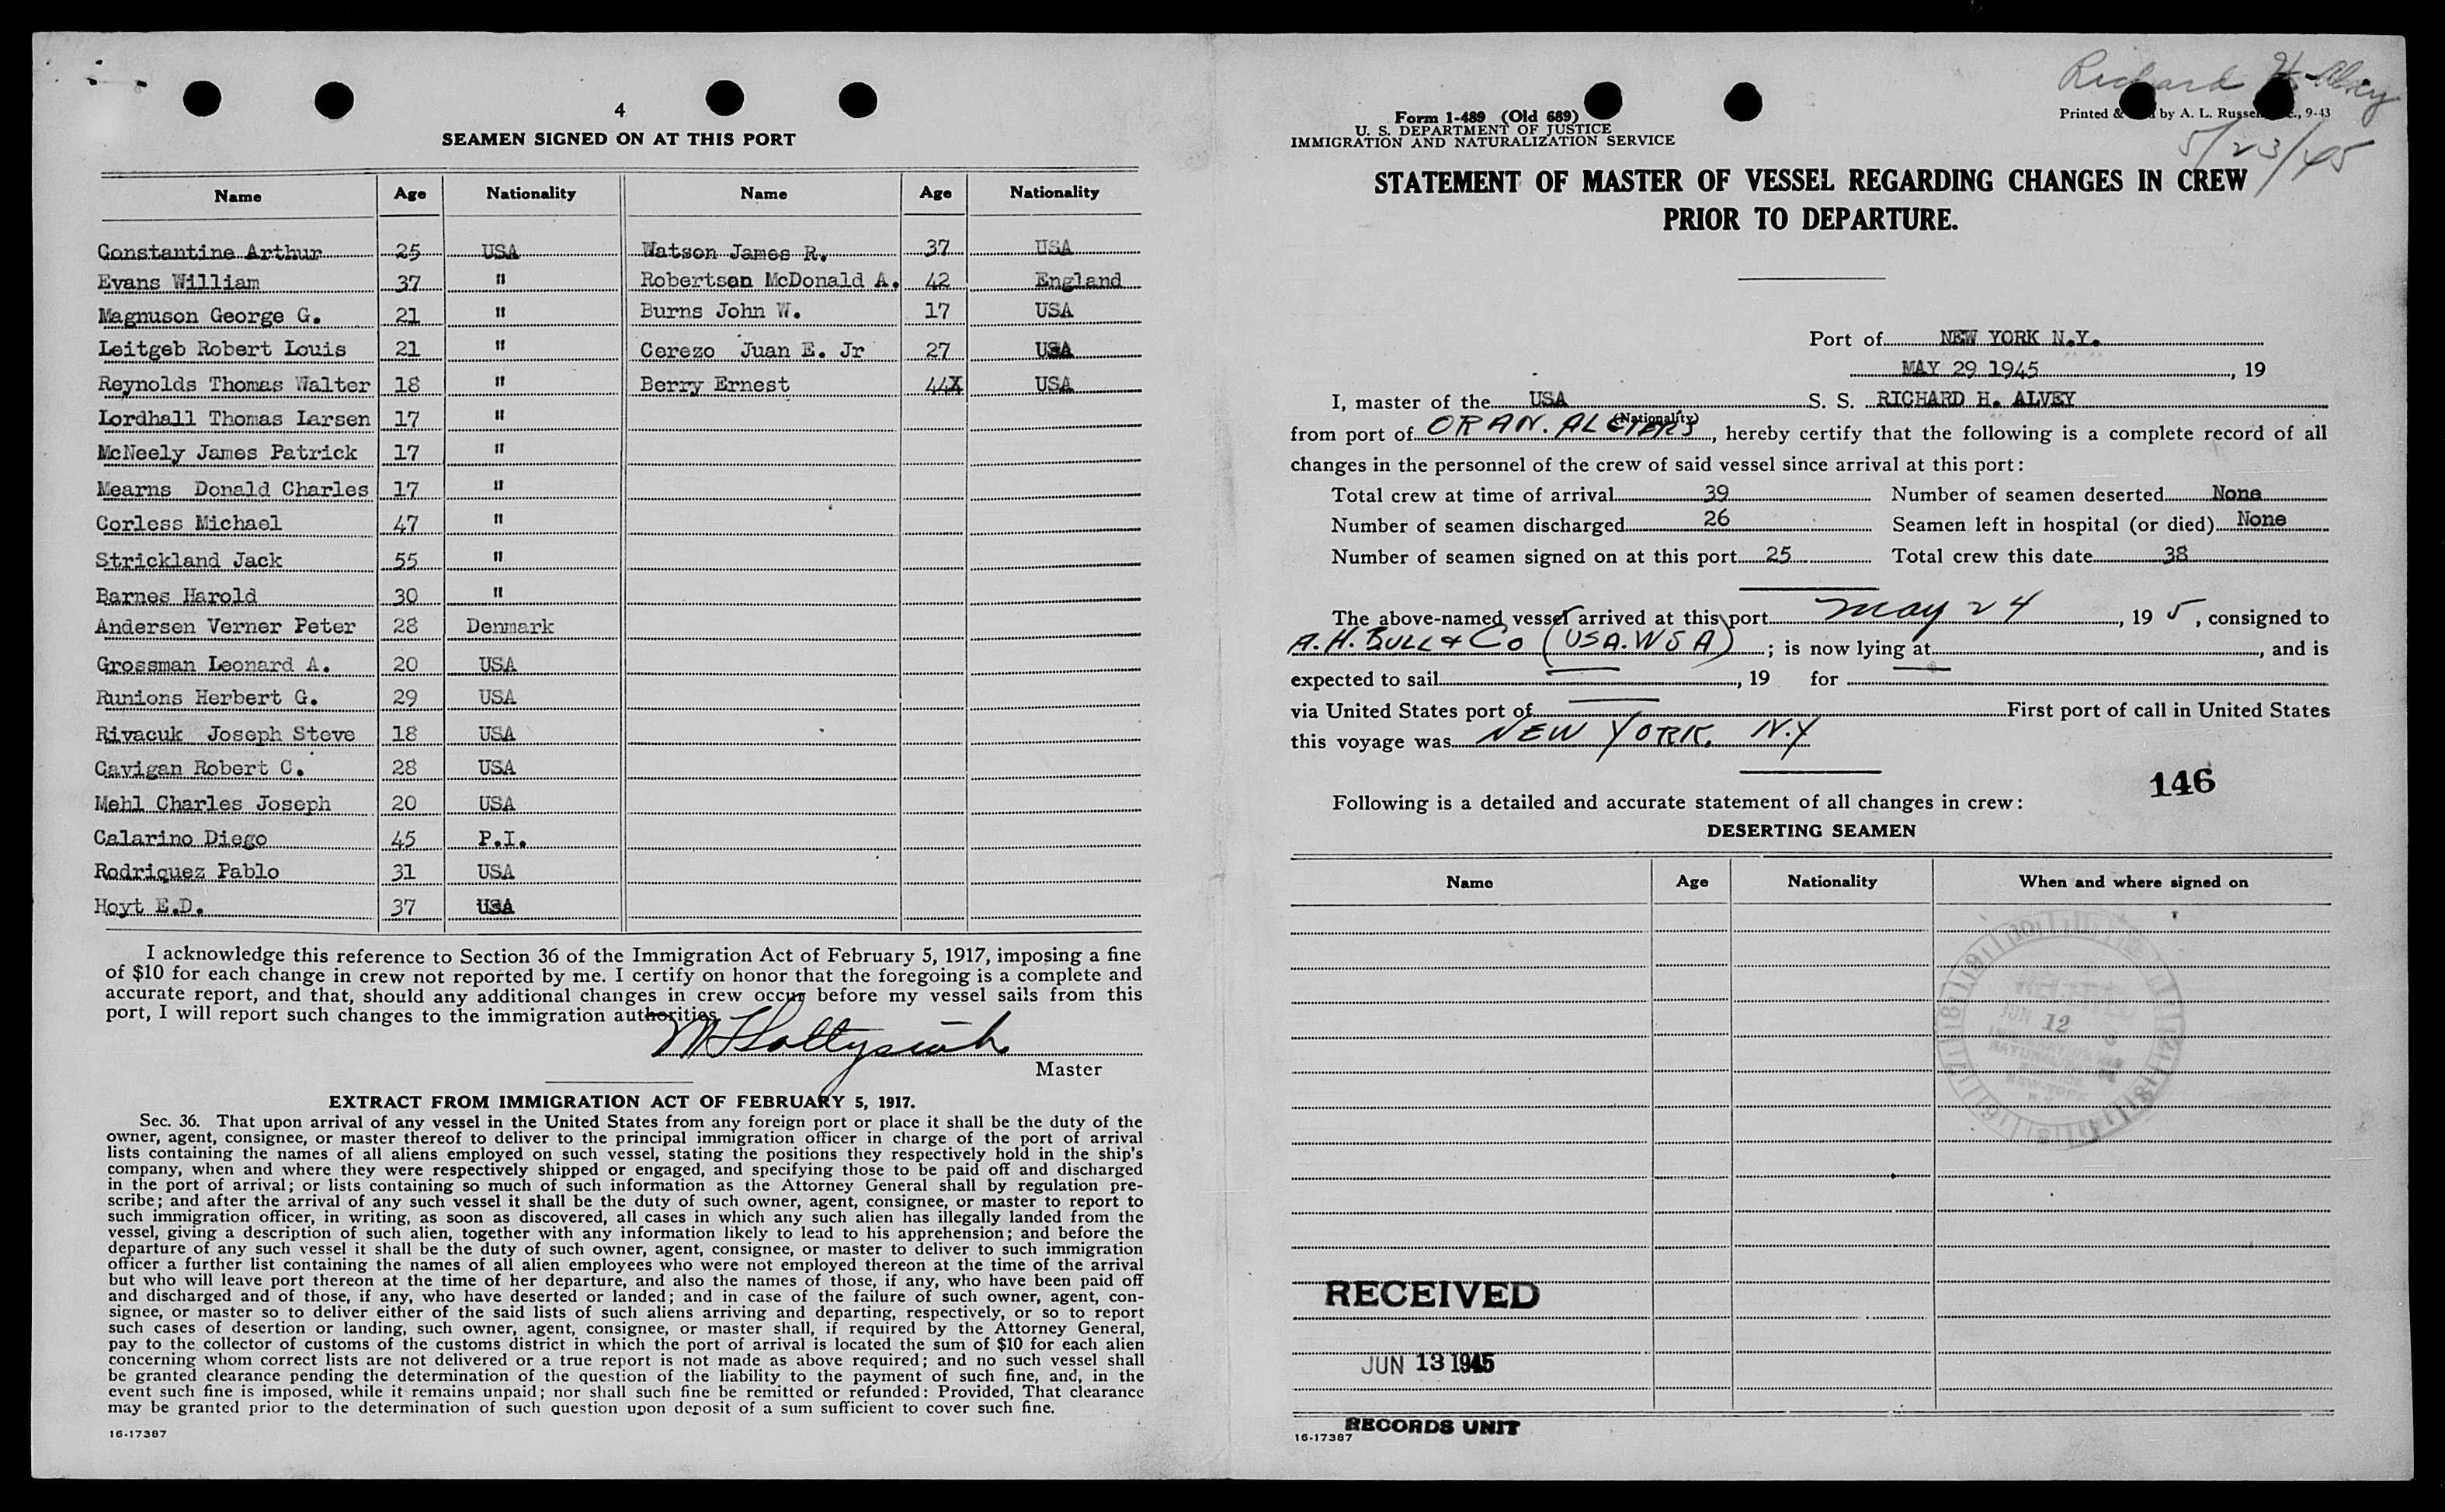 4
SEAMEN SIGNED ON AT THIS PORT
Name Age Nationality Name Age Nationality
Constantine Arthur 25 USA Watson James R. 37 USA
Evans William 37 " Robertson McDonald A. 42 England
Magnuson George G. 21 " Burns John W. 17 USA
Leitgeb Robert Louis 21 " Cerezo Juan E. Jr 27 USA
Reynolds Thomas Walter 18 " Berry Ernest 44X USA
Lordhall Thomas Larsen 17 "
McNeely James Patrick 17 "
Mearns Donald Charles 17 "
Corless Michael 47 "
Strickland Jack 55 "
Barnes Harold 30 "
Andersen Verner Peter 28 Denmark
Grossman Leonard A. 20 USA
Runions Herbert G. 29 USA
Rivacuk Joseph Steve 18 USA
Cavigan Robert C. 28 USA
Mehl Charles Joseph 20 USA
Calarino Diego 45 P.I.
Rodriquez Pablo 31 USA
Hoyt E.D. 37 USA
I acknowledge this reference to Section 36 of the Immigration Act of February 5, 1917, imposing a fine
of $10 for each change in crew not reported by me. I certify on honor that the foregoing is a complete and
accurate report, and that, should any additional changes in crew occur before my vessel sails from this
port, I will report such changes to the immigration authorities.
Master
EXTRACT FROM IMMIGRATION ACT OF FEBRUARY 5, 1917.
Sec. 36. That upon arrival of any vessel in the United States from any foreign port or place it shall be the duty of the
owner, agent, consignee, or master thereof to deliver to the principal immigration officer in charge of the port of arrival
lists containing the names of all aliens employed on such vessel, stating the positions they respectively hold in the ship's
company, when and where they were respectively shipped or engaged, and specifying those to be paid off and discharged
in the port of arrival; or lists containing so much of such information as the Attorney General shall by regulation pre-
scribe; and after the arrival of any such vessel it shall be the duty of such owner, agent, consignee, or master to report to
such immigration officer, in writing, as soon as discovered, all cases in which any such alien has illegally landed from the
vessel, giving a description of such alien, together with any information likely to lead to his apprehension; and before the
departure of any such vessel it shall be the duty of such owner, agent, consignee, or master to deliver to such immigration
officer a further list containing the names of all alien employees who were not employed thereon at the time of the arrival
but who will leave port thereon at the time of her departure, and also the names of those, if any, who have been paid off
and discharged and of those, if any, who have deserted or landed; and in case of the failure of such owner, agent, con-
signee, or master so to deliver either of the said lists of such aliens arriving and departing, respectively, or so to report
such cases of desertion or landing, such owner, agent, consignee, or master shall, if required by the Attorney General,
pay to the collector of customs of the customs district in which the port of arrival is located the sum of $10 for each alien
concerning whom correct lists are not delivered or a true report is not made as above required; and no such vessel shall
be granted clearance pending the determination of the question of the liability to the payment of such fine, and, in the
event such fine is imposed, while it remains unpaid; nor shall such fine be remitted or refunded: Provided, That clearance
may be granted prior to the determination of such question upon deposit of a sum sufficient to cover such fine.
16-17387
Richard H. Alvey
Form 1-489 (Old 689)
Printed & by A. L. Russell, 9-43
U. S. DEPARTMENT OF JUSTICE
IMMIGRATION AND NATURALIZATION SERVICE
5/23/45
STATEMENT OF MASTER OF VESSEL REGARDING CHANGES IN CREW
PRIOR TO DEPARTURE.
Port of NEW YORK N.Y.
MAY 29 1945, 19
I, master of the USA S. S. RICHARD H. ALVEY
(Nationality)
from port of ORAN. ALGIERS, hereby certify that the following is a complete record of all
changes in the personnel of the crew of said vessel since arrival at this port:
Total crew at time of arrival 39 Number of seamen deserted None
Number of seamen discharged 26 Seamen left in hospital (or died) None
Number of seamen signed on at this port 25 Total crew this date 38
The above-named vessel arrived at this port May 24, 19 5, consigned to
A. H. BULL & Co (USA. WSA); is now lying at, and is
expected to sail, 19 for
via United States port of First port of call in United States
this voyage was NEW YORK. N.Y
146
Following is a detailed and accurate statement of all changes in crew:
DESERTING SEAMEN
Name Age Nationality When and where signed on
RECEIVED
JUN 12
RECEIVED
JUN 13 1945
RECORDS UNIT
16-17387